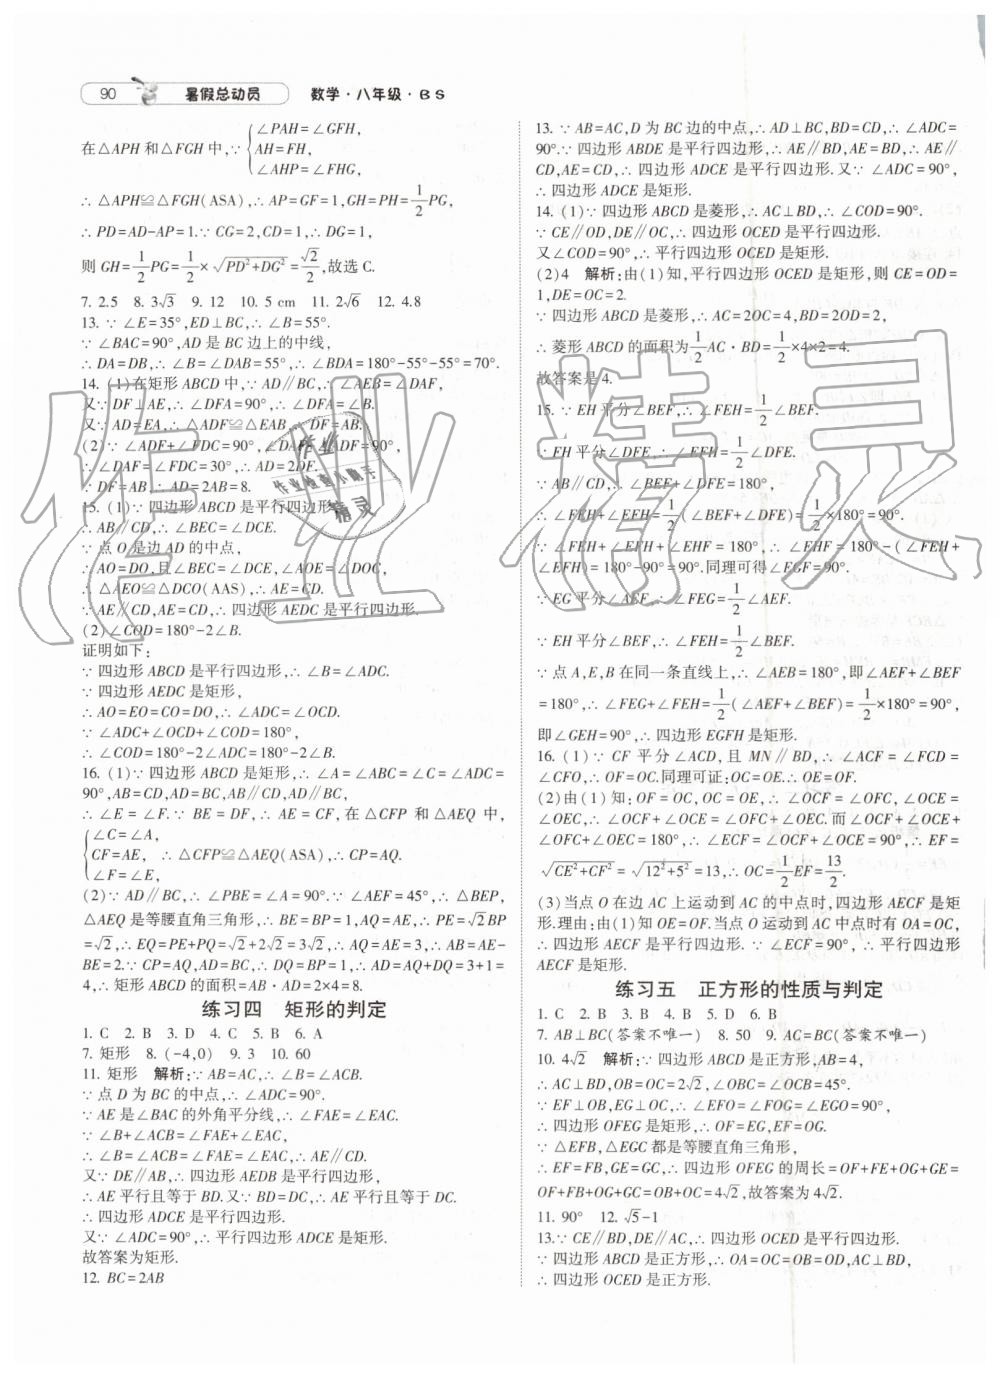 90 暑假总动员 数学·八年级·BS
在△APH 和△FGH 中,∵ { ∠PAH=∠GFH,
AH=FH,
∠AHP=∠FHG,
∴ △APH≌△FGH(ASA),∴ AP=GF=1,GH=PH=1/2PG,
∴ PD=AD-AP=1.∵ CG=2,CD=1,∴ DG=1,
则 GH=1/2PG=1/2×√(PD²+DG²)=√2/2,故选 C.
7. 2.5 8. 3√3 9. 12 10. 5 cm 11. 2√6 12. 4.8
13. ∵ ∠E=35°,ED⊥BC,∴ ∠B=55°.
∵ ∠BAC=90°,AD 是 BC 边上的中线,
∴ DA=DB,∴ ∠B=∠DAB=55°,∴ ∠BDA=180°-55°-55°=70°.
14. (1)在矩形 ABCD 中,∵ AD∥BC,∴ ∠AEB=∠DAF,
又∵ DF⊥AE,∴ ∠DFA=90°,∴ ∠DFA=∠B.
又∵ AD=EA,∴ △ADF≌△EAB,∴ DF=AB.
(2)∵ ∠ADF+∠FDC=90°,∠DAF+∠ADF=90°,
∴ ∠DAF=∠FDC=30°,∴ AD=2DF.
∵ DF=AB,∴ AD=2AB=8.
15. (1)∵ 四边形 ABCD 是平行四边形,
∴ AB∥CD,∴ ∠BEC=∠DCE.
∵ 点 O 是边 AD 的中点,
∴ AO=DO,且∠BEC=∠DCE,∠AOE=∠DOC,
∴ △AEO≌△DCO(AAS),∴ AE=CD.
∵ AE∥CD,AE=CD,∴ 四边形 AEDC 是平行四边形.
(2)∠COD=180°-2∠B.
证明如下:
∵ 四边形 ABCD 是平行四边形,∴ ∠B=∠ADC.
∵ 四边形 AEDC 是矩形,
∴ AO=EO=CO=DO,∴ ∠ADC=∠OCD.
∵ ∠ADC+∠OCD+∠COD=180°,
∴ ∠COD=180°-2∠ADC=180°-2∠B.
16. (1)∵ 四边形 ABCD 是矩形,∴ ∠A=∠ABC=∠C=∠ADC=
90°,AB=CD,AD=BC,AB∥CD,AD∥BC,
∴ ∠E=∠F.∵ BE=DF,∴ AE=CF,在△CFP 和△AEQ 中,
{ ∠C=∠A,
CF=AE, ∴ △CFP≌△AEQ(ASA),∴ CP=AQ.
∠F=∠E,
(2)∵ AD∥BC,∴ ∠PBE=∠A=90°.∵ ∠AEF=45°,∴ △BEP,
△AEQ 是等腰直角三角形,∴ BE=BP=1,AQ=AE,∴ PE=√2BP
=√2,∴ EQ=PE+PQ=√2+2√2=3√2,∴ AQ=AE=3,∴ AB=AE-
BE=2.∵ CP=AQ,AD=BC,∴ DQ=BP=1,∴ AD=AQ+DQ=3+1=
4,∴ 矩形 ABCD 的面积=AB·AD=2×4=8.
练习四 矩形的判定
1. C 2. B 3. D 4. C 5. B 6. A
7. 矩形 8. (-4,0) 9. 3 10. 60
11. 矩形 解析:∵ AB=AC,∴ ∠B=∠ACB.
∵ 点 D 为 BC 的中点,∴ ∠ADC=90°.
∵ AE 是∠BAC 的外角平分线,∴ ∠FAE=∠EAC.
∵ ∠B+∠ACB=∠FAE+∠EAC,
∴ ∠B=∠ACB=∠FAE=∠EAC,∴ AE∥CD.
又∵ DE∥AB,∴ 四边形 AEDB 是平行四边形,
∴ AE 平行且等于 BD.又∵ BD=DC,∴ AE 平行且等于 DC.
∴ 四边形 ADCE 是平行四边形.
又∵ ∠ADC=90°,∴ 平行四边形 ADCE 是矩形.
故答案为矩形.
12. BC=2AB
13. ∵ AB=AC,D 为 BC 边的中点,∴ AD⊥BC,BD=CD,∴ ∠ADC=
90°.∵ 四边形 ABDE 是平行四边形,∴ AE∥BD,AE=BD,∴ AE∥
CD,AE=CD,∴ 四边形 ADCE 是平行四边形.又∵ ∠ADC=90°,
∴ 四边形 ADCE 是矩形.
14. (1)∵ 四边形 ABCD 是菱形,∴ AC⊥BD,∴ ∠COD=90°.
∵ CE∥OD,DE∥OC,∴ 四边形 OCED 是平行四边形.
又∠COD=90°,∴ 平行四边形 OCED 是矩形.
(2)4 解析:由(1)知,平行四边形 OCED 是矩形,则 CE=OD=
1,DE=OC=2.
∵ 四边形 ABCD 是菱形,∴ AC=2OC=4,BD=2OD=2,
∴ 菱形 ABCD 的面积为1/2AC·BD=1/2×4×2=4.
故答案是 4.
15. ∵ EH 平分∠BEF,∴ ∠FEH=1/2∠BEF.
∵ EH 平分∠DFE,∴ ∠EFH=1/2∠DFE.
∵ AB∥CD,∴ ∠BEF+∠DFE=180°,
∴ ∠FEH+∠EFH=1/2(∠BEF+∠DFE)=1/2×180°=90°.
∵ ∠FEH+∠EFH+∠EHF=180°,∴ ∠EHF=180°-(∠FEH+
∠EFH)=180°-90°=90°.同理可得∠EGF=90°.
∵ EG 平分∠AEF,∴ ∠FEG=1/2∠AEF.
∵ EH 平分∠BEF,∴ ∠FEH=1/2∠BEF.
∵ 点 A,E,B 在同一条直线上,∴ ∠AEB=180°,即∠AEF+∠BEF
=180°,∴ ∠FEG+∠FEH=1/2(∠AEF+∠BEF)=1/2×180°=90°,
即∠GEH=90°.∴ 四边形 EGFH 是矩形.
16. (1)∵ CF 平分∠ACD,且 MN∥BD,∴ ∠ACF=∠FCD=
∠CFO,∴ OF=OC.同理可证:OC=OE.∴ OE=OF.
(2)由(1)知:OF=OC,OC=OE,∴ ∠OCF=∠OFC,∠OCE=
∠OEC,∴ ∠OCF+∠OCE=∠OFC+∠OEC.而∠OCF+∠OCE+
∠OFC+∠OEC=180°,∴ ∠ECF=∠OCF+∠OCE=90°,∴ EF=
√(CE²+CF²)=√(12²+5²)=13,∴ OC=1/2EF=13/2.
(3)当点 O 在边 AC 上运动到 AC 的中点时,四边形 AECF 是矩
形.理由:由(1)知 OE=OF.当点 O 运动到 AC 中点时有 OA=OC,
∴ 四边形 AECF 是平行四边形.∵ ∠ECF=90°,∴ 平行四边形
AECF 是矩形.
练习五 正方形的性质与判定
1. C 2. B 3. D 4. B 5. D 6. B
7. AB⊥BC(答案不唯一) 8. 50 9. AC=BC(答案不唯一)
10. 4√2 解析:∵ 四边形 ABCD 是正方形,AB=4,
∴ AC⊥BD,OB=OC=2√2,∠OBC=∠OCB=45°.
∵ EF⊥OB,EG⊥OC,∴ ∠EFO=∠FOG=∠EGO=90°,
∴ 四边形 OFEG 是矩形,∴ OF=EG,EF=OG.
∵ △EFB,△EGC 都是等腰直角三角形,
∴ EF=FB,GE=GC,∴ 四边形 OFEG 的周长=OF+FE+OG+GE=
OF+FB+OG+GC=OB+OC=4√2,故答案为4√2.
11. 90° 12. √5-1
13.∵ CE∥BD,DE∥AC,∴ 四边形 OCED 是平行四边形.
∵ 四边形 ABCD 是正方形,∴ OA=OC=OB=OD,AC⊥BD,
∴ 四边形 OCED 是正方形.
作业精灵
作业
作业检查小助手
精灵